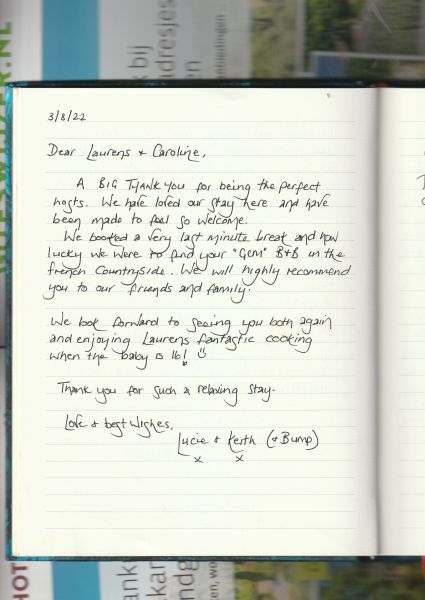 bij
adresjes
3/8/22
Dear Laurens & Caroline,
A BIG THANK YOU for being the perfect
hosts. We have loved our stay here and have
been made to feel so welcome.
We booked a very last minute break and how
lucky we were to find your "Gem" B+B in the
french Countryside. We will highly recommend
you to our friends and family.
We look forward to seeing you both again
and enjoying Laurens fantastic cooking
when the baby is 16! ☺
Thank you for such a relaxing stay.
Love & best wishes,
Lucie & Keith (& Bump)
x x
HOT